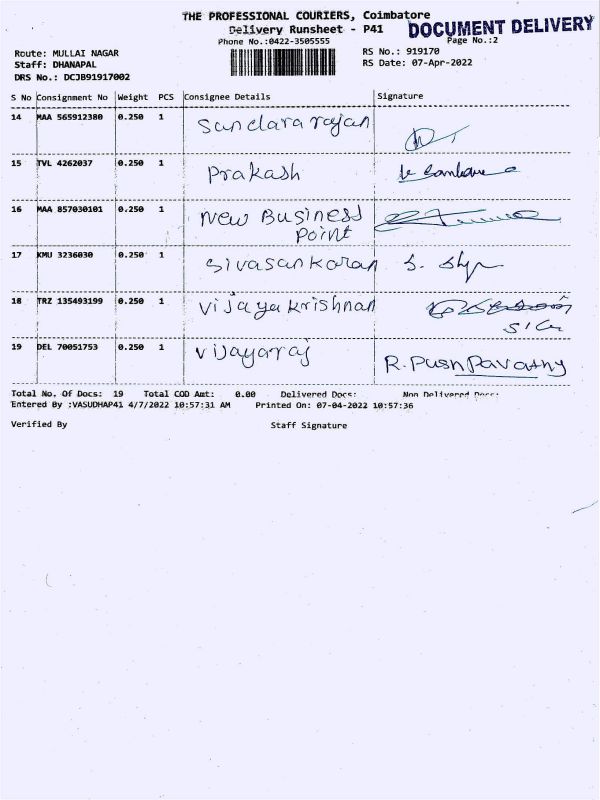 THE PROFESSIONAL COURIERS, Coimbatore
Delivery Runsheet - P41
DOCUMENT DELIVERY
Phone No.:0422-3505555
Page No.:2
Route: MULLAI NAGAR
RS No.: 919170
Staff: DHANAPAL
RS Date: 07-Apr-2022
DRS No.: DCJB91917002
S No Consignment No Weight PCS Consignee Details Signature
14 MAA 565912380 0.250 1 Sundararajan
15 TVL 4262037 0.250 1 Prakash
16 MAA 857030101 0.250 1 New Business
Point
17 KMU 3236030 0.250 1 Sivasankaran S.
18 TRZ 135493199 0.250 1 Vijayakrishnan
19 DEL 70051753 0.250 1 Vijayaraj R. Pushpavathy
Total No. Of Docs: 19 Total COD Amt: 0.00 Delivered Docs: Non Delivered Docs:
Entered By :VASUDHAP41 4/7/2022 10:57:31 AM Printed On: 07-04-2022 10:57:36
Verified By Staff Signature